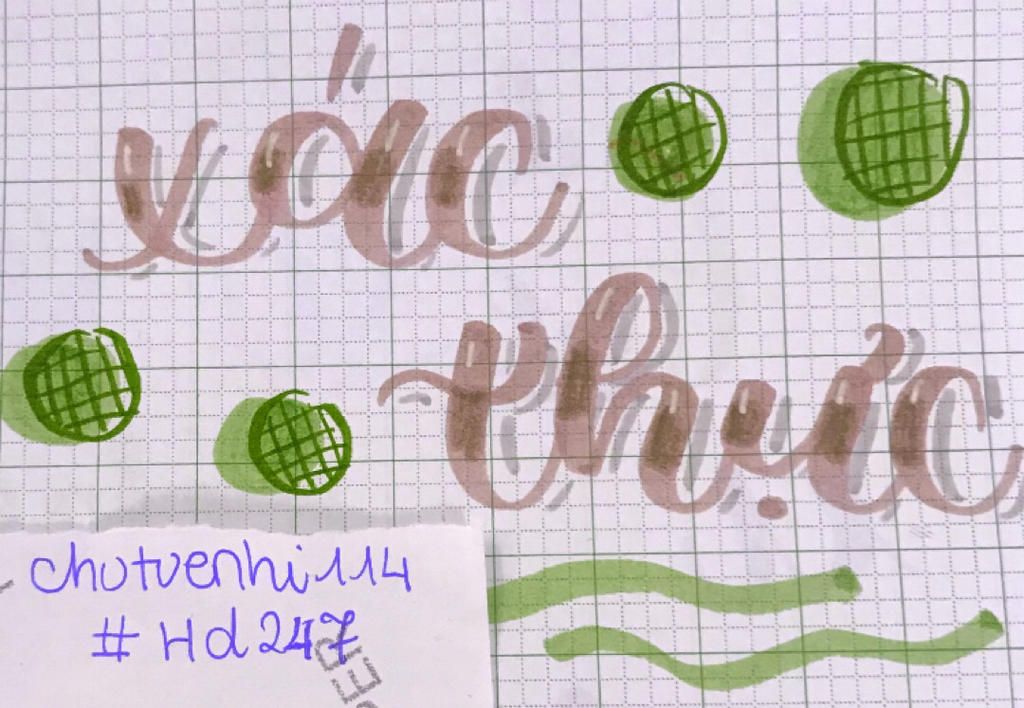 xác
thực
chutuenhi114
# Hd247
ER